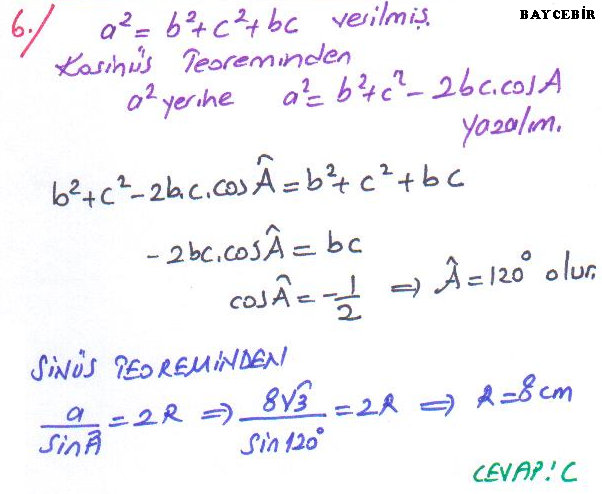 BAYCEBİR
6./ a² = b²+c²+bc verilmiş.
Kosinüs Teoreminden
a² yerine a² = b²+c² - 2bc.cosA
yazalım.
b²+c²-2b.c.cosÂ = b²+c²+bc
-2bc.cosÂ = bc
cosÂ = -1/2 ⇒ Â = 120° olur.
SİNÜS TEOREMİNDEN
a/sinÂ = 2R ⇒ 8√3/sin120° = 2R ⇒ R = 8cm
CEVAP: C